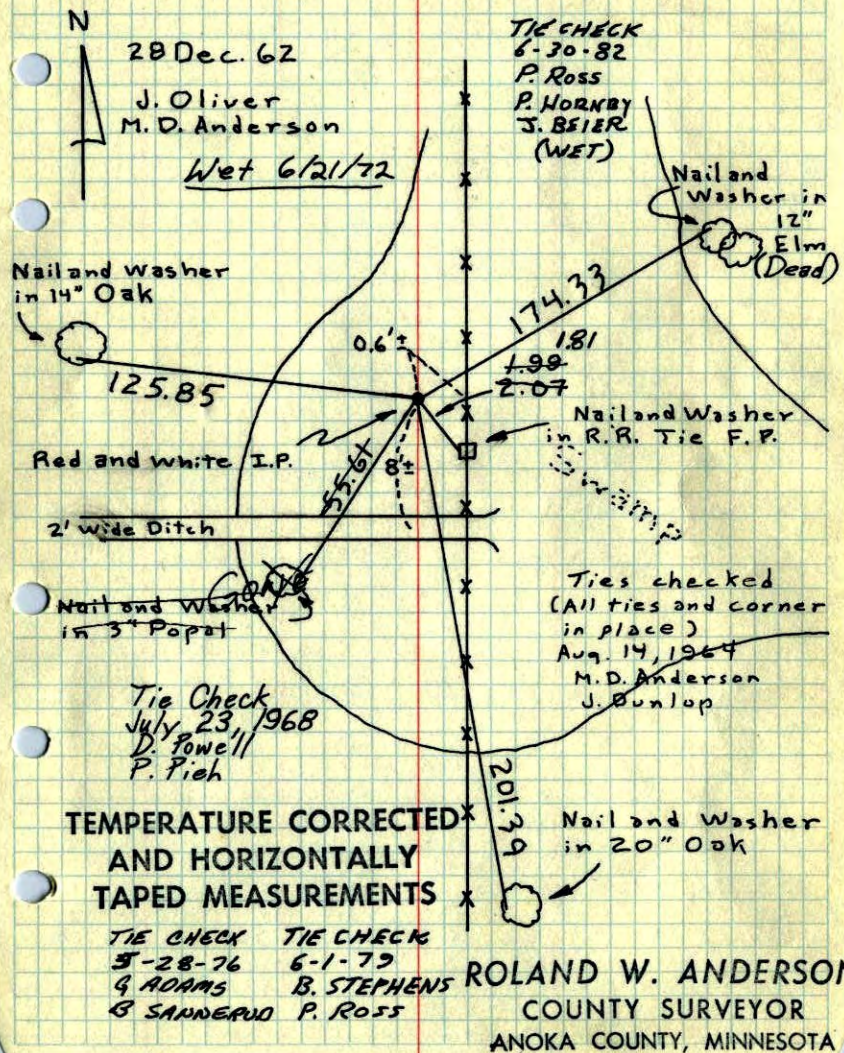 N
28 Dec. 62
J. Oliver
M. D. Anderson
Wet 6/21/72
TIE CHECK
6-30-82
P. ROSS
P. HORNBY
J. BEIER
(WET)
Nail and
Washer in
12"
Elm
(Dead)
Nail and Washer
in 14" Oak
174.33
0.6'±
1.81
1.99
2.07
125.85
Nail and Washer
in R.R. Tie F.P.
Red and White I.P.
55.61
8'±
Swamp
2' Wide Ditch
Gone
Nail and Washer
in 3" Popal
Ties checked
(All ties and corner
in place)
Aug. 14, 1964
M. D. Anderson
J. Dunlop
Tie Check
July 23, 1968
D. Powell
P. Pieh
201.39
Nail and Washer
in 20" Oak
TEMPERATURE CORRECTED
AND HORIZONTALLY
TAPED MEASUREMENTS
TIE CHECK TIE CHECK
5-28-76 6-1-79
G ADAMS B. STEPHENS
B SANNERUD P. ROSS
ROLAND W. ANDERSON
COUNTY SURVEYOR
ANOKA COUNTY, MINNESOTA